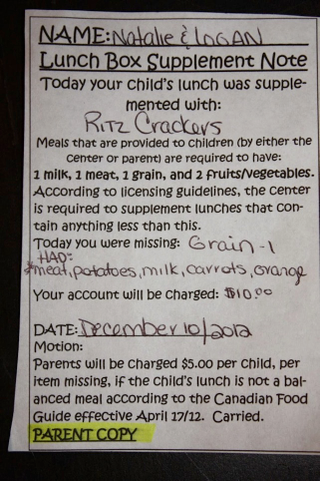 NAME: Natalie & LOGAN
Lunch Box Supplement Note
Today your child's lunch was supple-
mented with:
RITZ Crackers
Meals that are provided to children (by either the
center or parent) are required to have:
1 milk, 1 meat, 1 grain, and 2 fruits/vegetables.
According to licensing guidelines, the center
is required to supplement lunches that con-
tain anything less than this.
Today you were missing: Grain-1
HAD:
*meat, potatoes, milk, carrots, orange
Your account will be charged: $10.00
DATE: December 10/2012
Motion:
Parents will be charged $5.00 per child, per
item missing, if the child's lunch is not a bal-
anced meal according to the Canadian Food
Guide effective April 17/12. Carried.
PARENT COPY